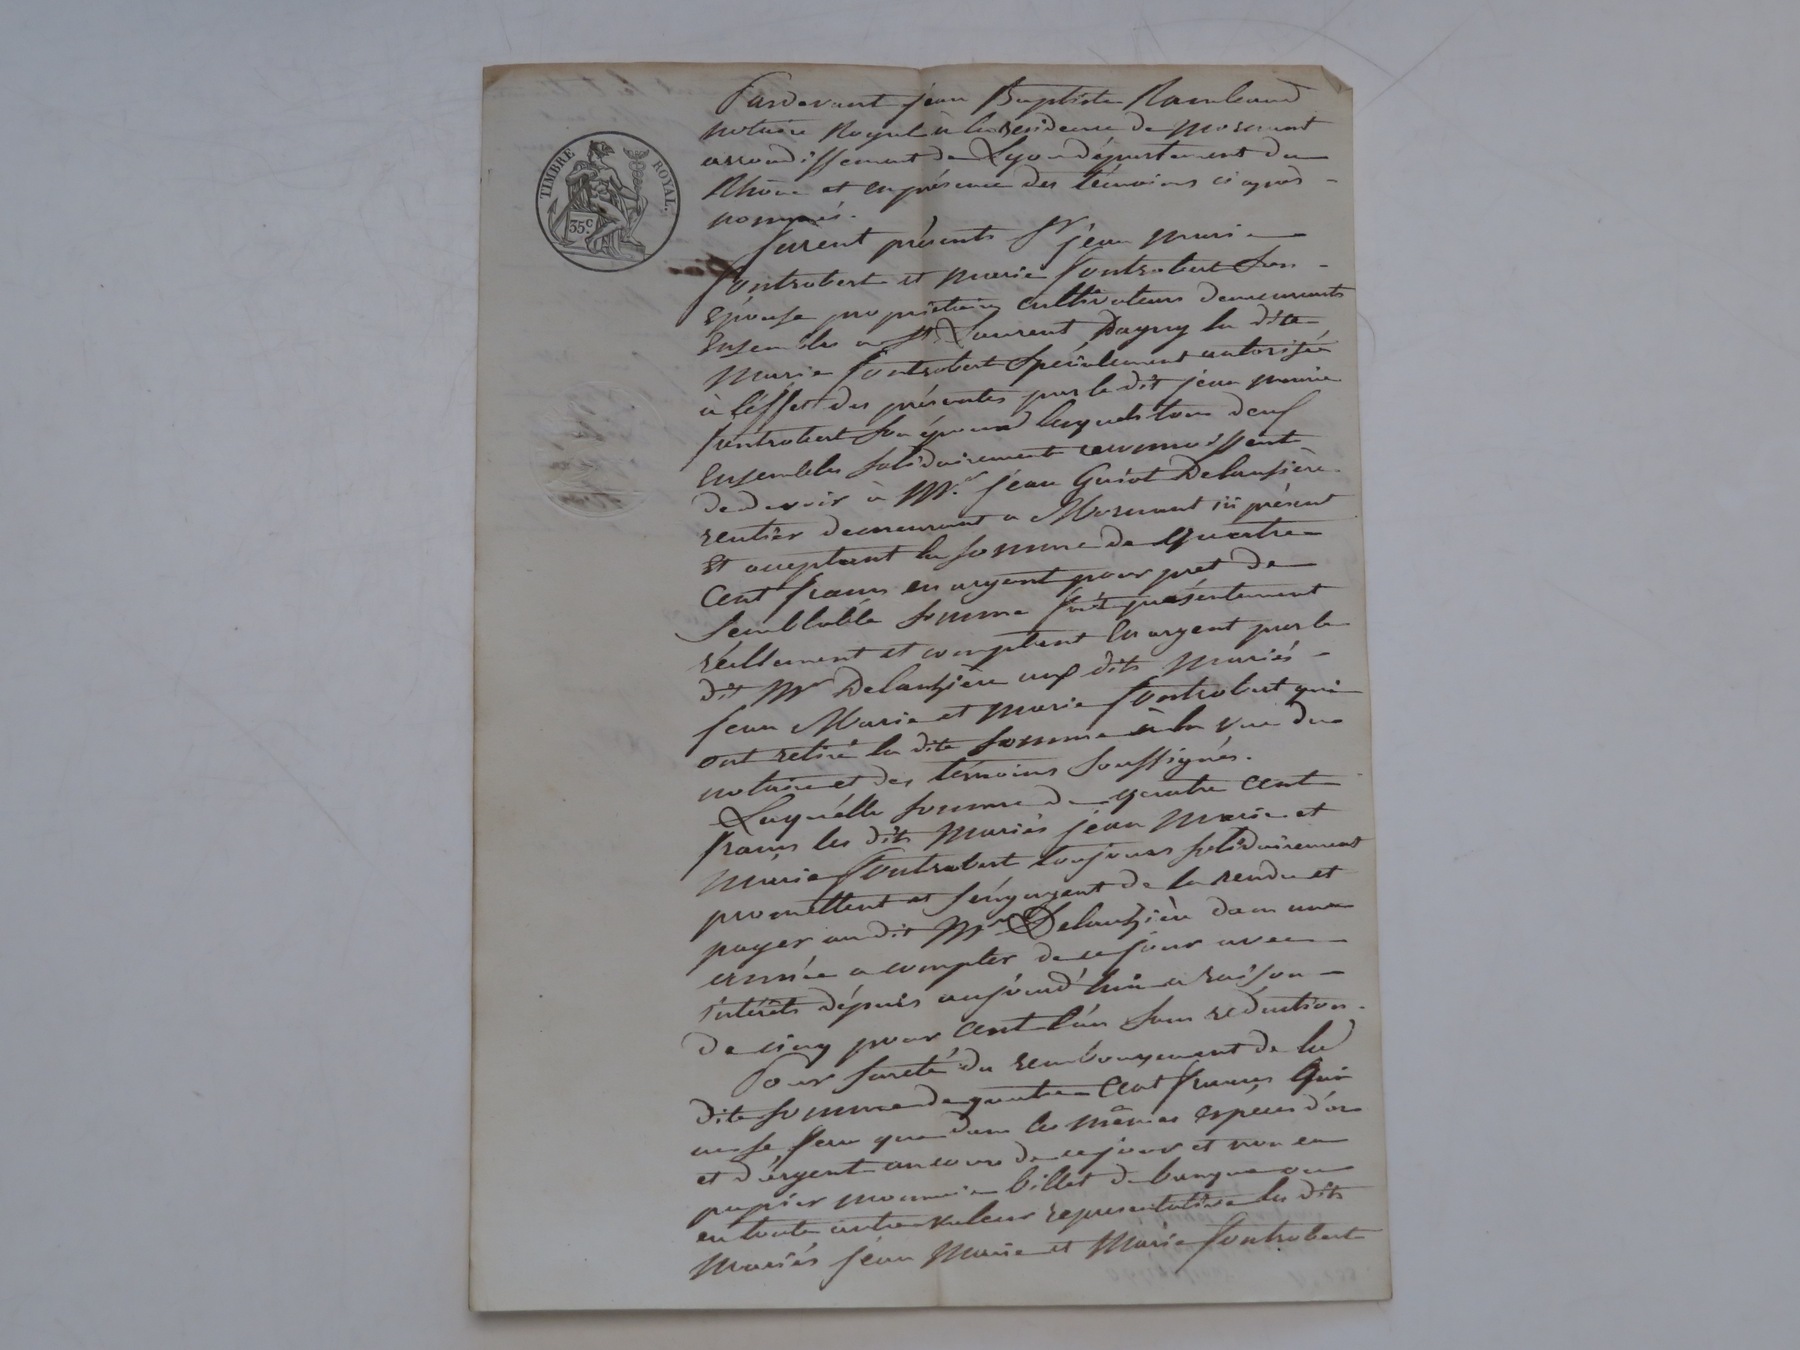 TIMBRE ROYAL.
35c.
Pardevant jean Baptiste Rambaud
notaire Royal à la residence de mornant
arrondissement de Lyon département du
Rhône et en présence des témoins ci après
nommés.
furent présents Sr jean marie
fontrobert et marie fontrobert son
épouse propriétaires cultivateurs demeurants
Ensembles a St Laurent Dagny la dite
marie fontrobert Spécialement autorisée
à l'éffet des présentes par le dit jean marie
fontrobert Son époux lesquels tous deux
Ensembles solidairement reconnoissent
de devoir à Mr jean Guiot Delauzière
rentier demeurant a Mornant ici présent
Et acceptant la somme de quatre
Cent francs en argent pour pret de
Semblable somme fait présentement
réellement et comptant En argent par le
dit Mr Delauzière aux dits mariés
jean Marie et marie fontrobert qui
ont retiré la dite somme à la vue du
notaire et des témoins Soussignés.
Laquélle somme de quatre cent
francs les dits mariés jean marie et
marie fontrobert toujours solidairement
promettent et s'éngagent de la rendre et
payer au dit Mr Delauzière dans une
année a compter de ce jour avec
intérêts dépuis aujourd'hui a raison
de cinq pour cent l'an sans réduction.
Pour sureté du remboursement de la
dite somme de quatre Cent francs Qui
ne se fera que dans les mêmes espèces d'or
et d'argent au cours de ce jour et non en
papier monnoie billet de banque ou
en toute autre valeur representative les dits
mariés jean Marie et Marie fontrobert